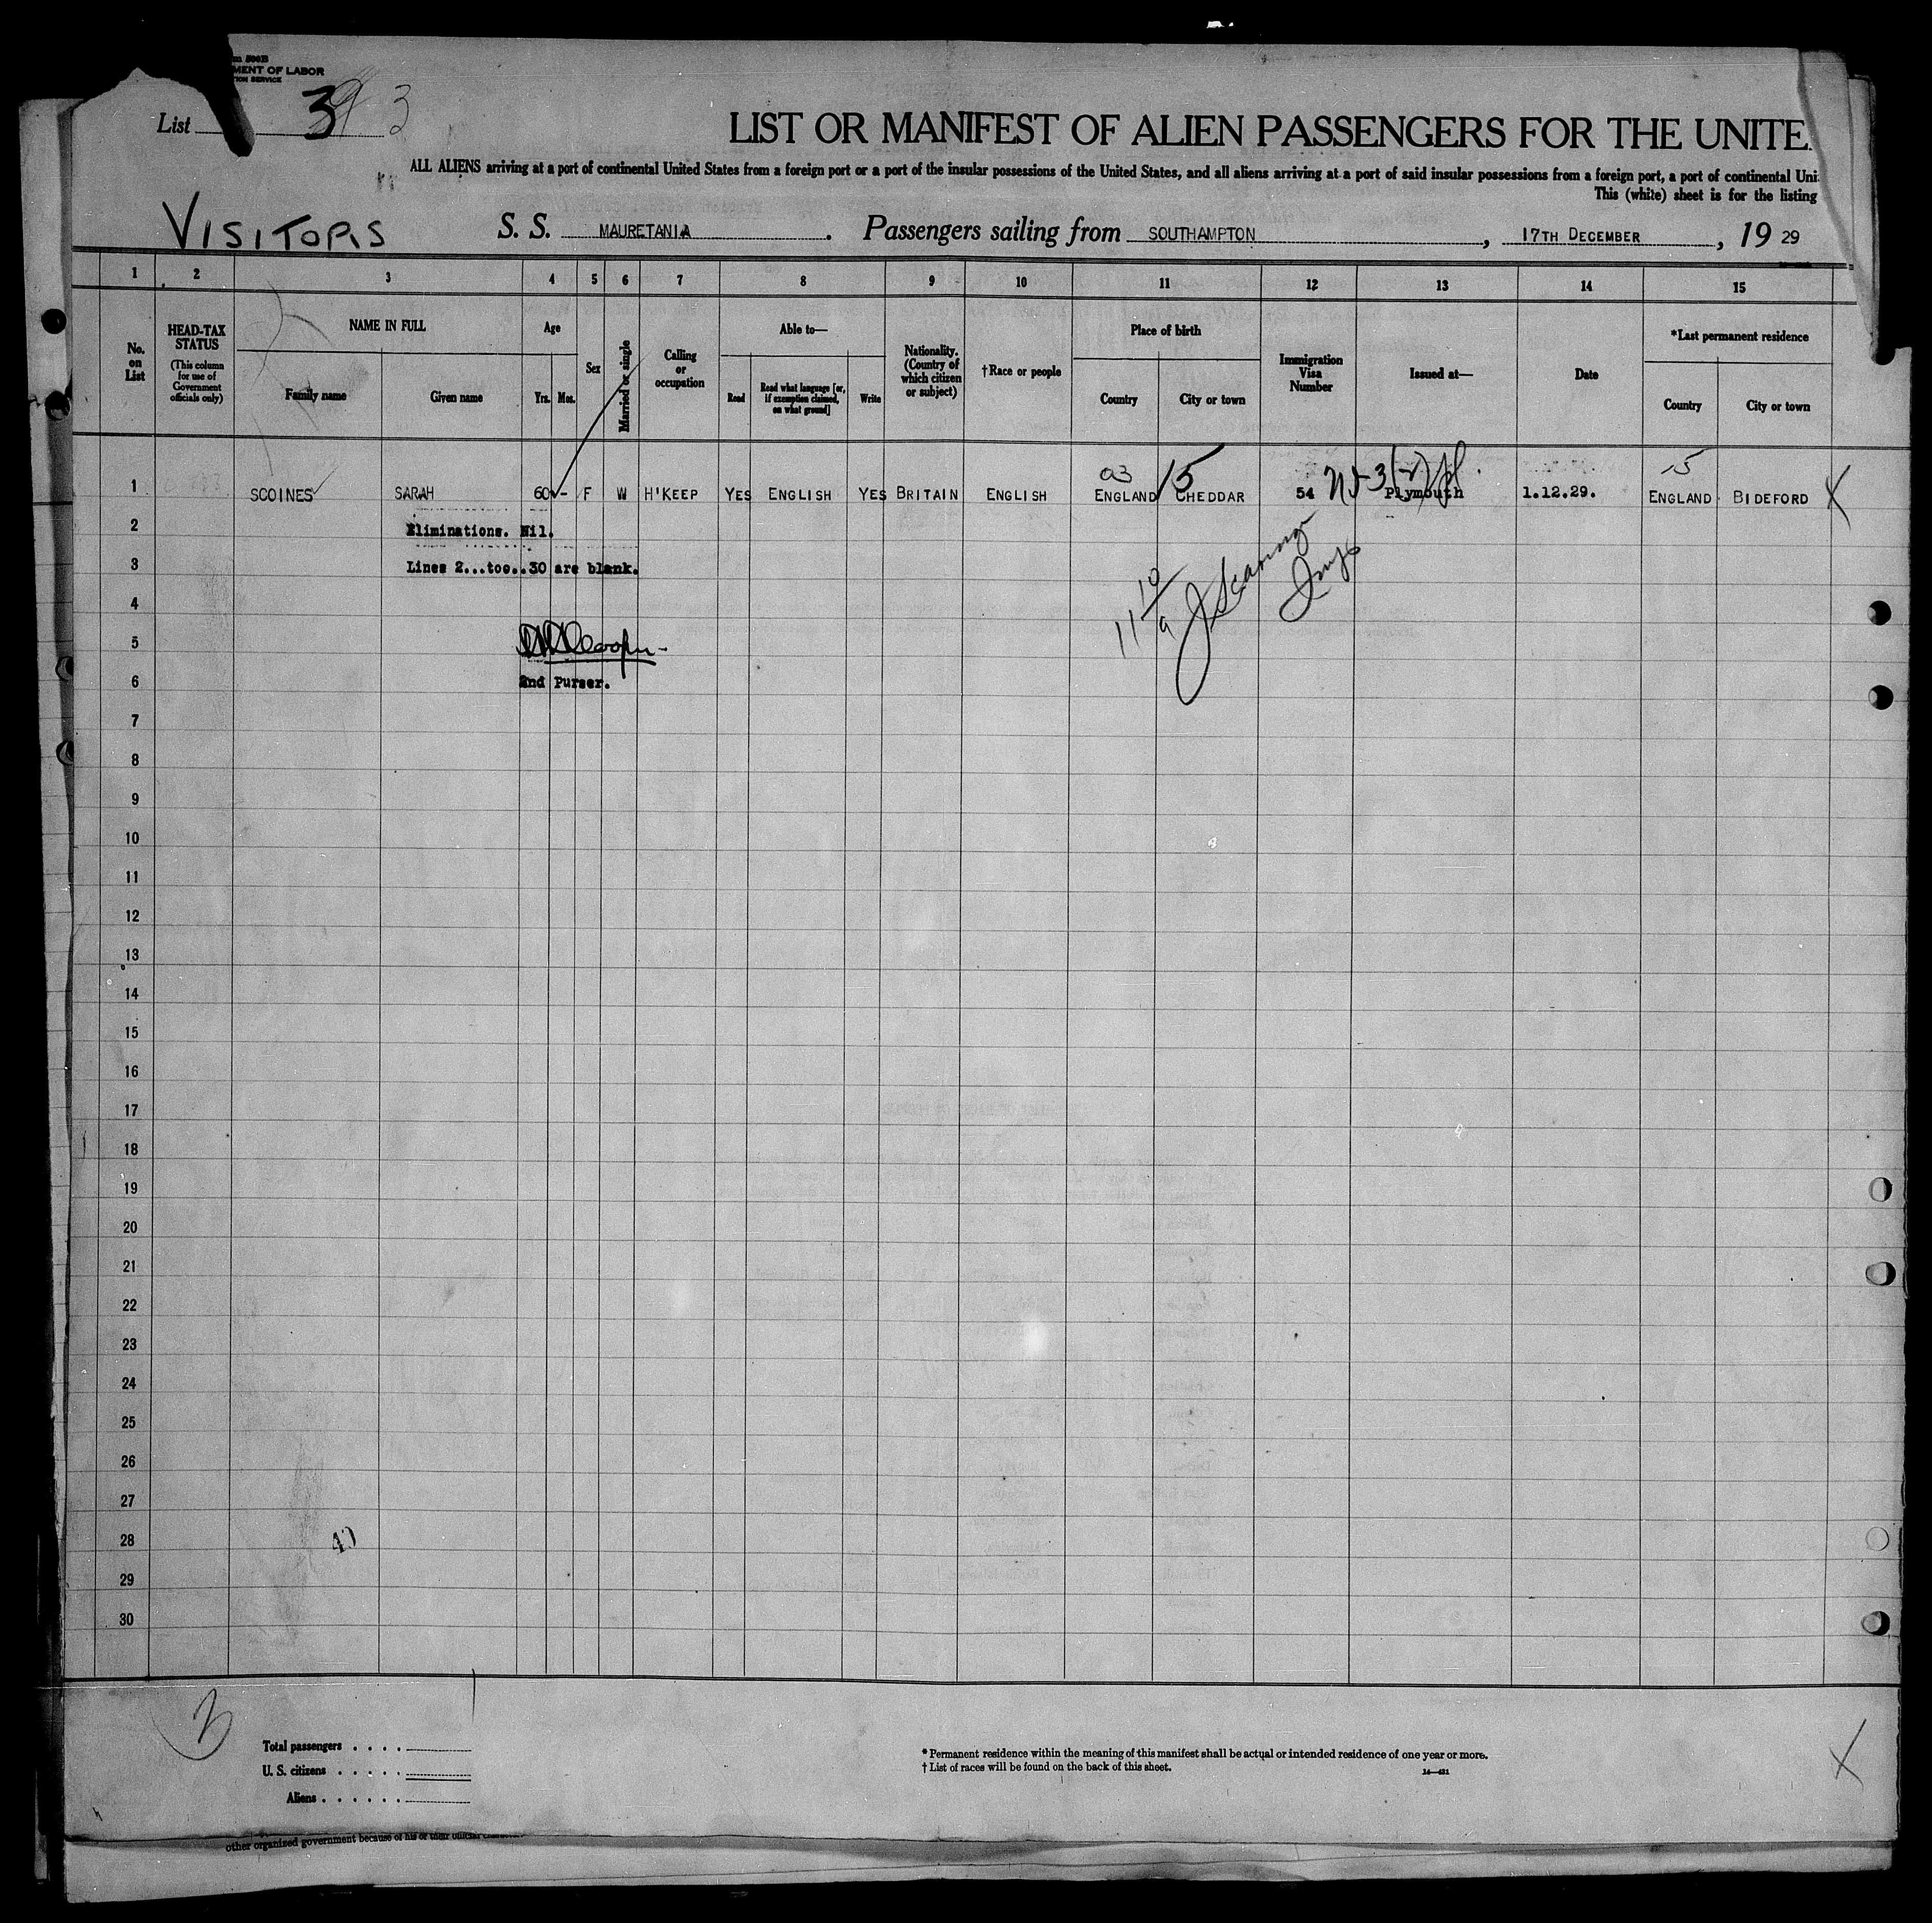 MENT OF LABOR
List 3 3
LIST OR MANIFEST OF ALIEN PASSENGERS FOR THE UNITE
ALL ALIENS arriving at a port of continental United States from a foreign port or a port of the insular possessions of the United States, and all aliens arriving at a port of said insular possessions from a foreign port, a port of continental Uni
This (white) sheet is for the listing
VISITORS
S. S. MAURETANIA. Passengers sailing from SOUTHAMPTON, 17TH DECEMBER, 19 29
1 2 3 4 5 6 7 8 9 10 11 12 13 14 15
No. on List
HEAD-TAX STATUS
(This column for use of Government officials only)
NAME IN FULL
Family name
Given name
Age
Yrs.
Mos.
Sex
Married or single
Calling or occupation
Able to—
Read
Read what language [or, if exemption claimed, on what ground]
Write
Nationality. (Country of which citizen or subject)
†Race or people
Place of birth
Country
City or town
Immigration Visa Number
Issued at—
Date
*Last permanent residence
Country
City or town
03 15 15
1 SCOINES SARAH 60 - F W H'KEEP YES ENGLISH YES BRITAIN ENGLISH ENGLAND CHEDDAR 54 Plymouth 1.12.29. ENGLAND BIDEFORD X
2 Eliminations. Nil.
3 Lines 2...too..30 are blank.
4
5
6 2nd Purser.
7
8
9
10
11
12
13
14
15
16
17
18
19
20
21
22
23
24
25
26
27
28
40
29
30
3
Total passengers . . . .
U. S. citizens . . . . .
Aliens . . . . . .
* Permanent residence within the meaning of this manifest shall be actual or intended residence of one year or more.
† List of races will be found on the back of this sheet.
14—431
X
other organized government because of his or their official